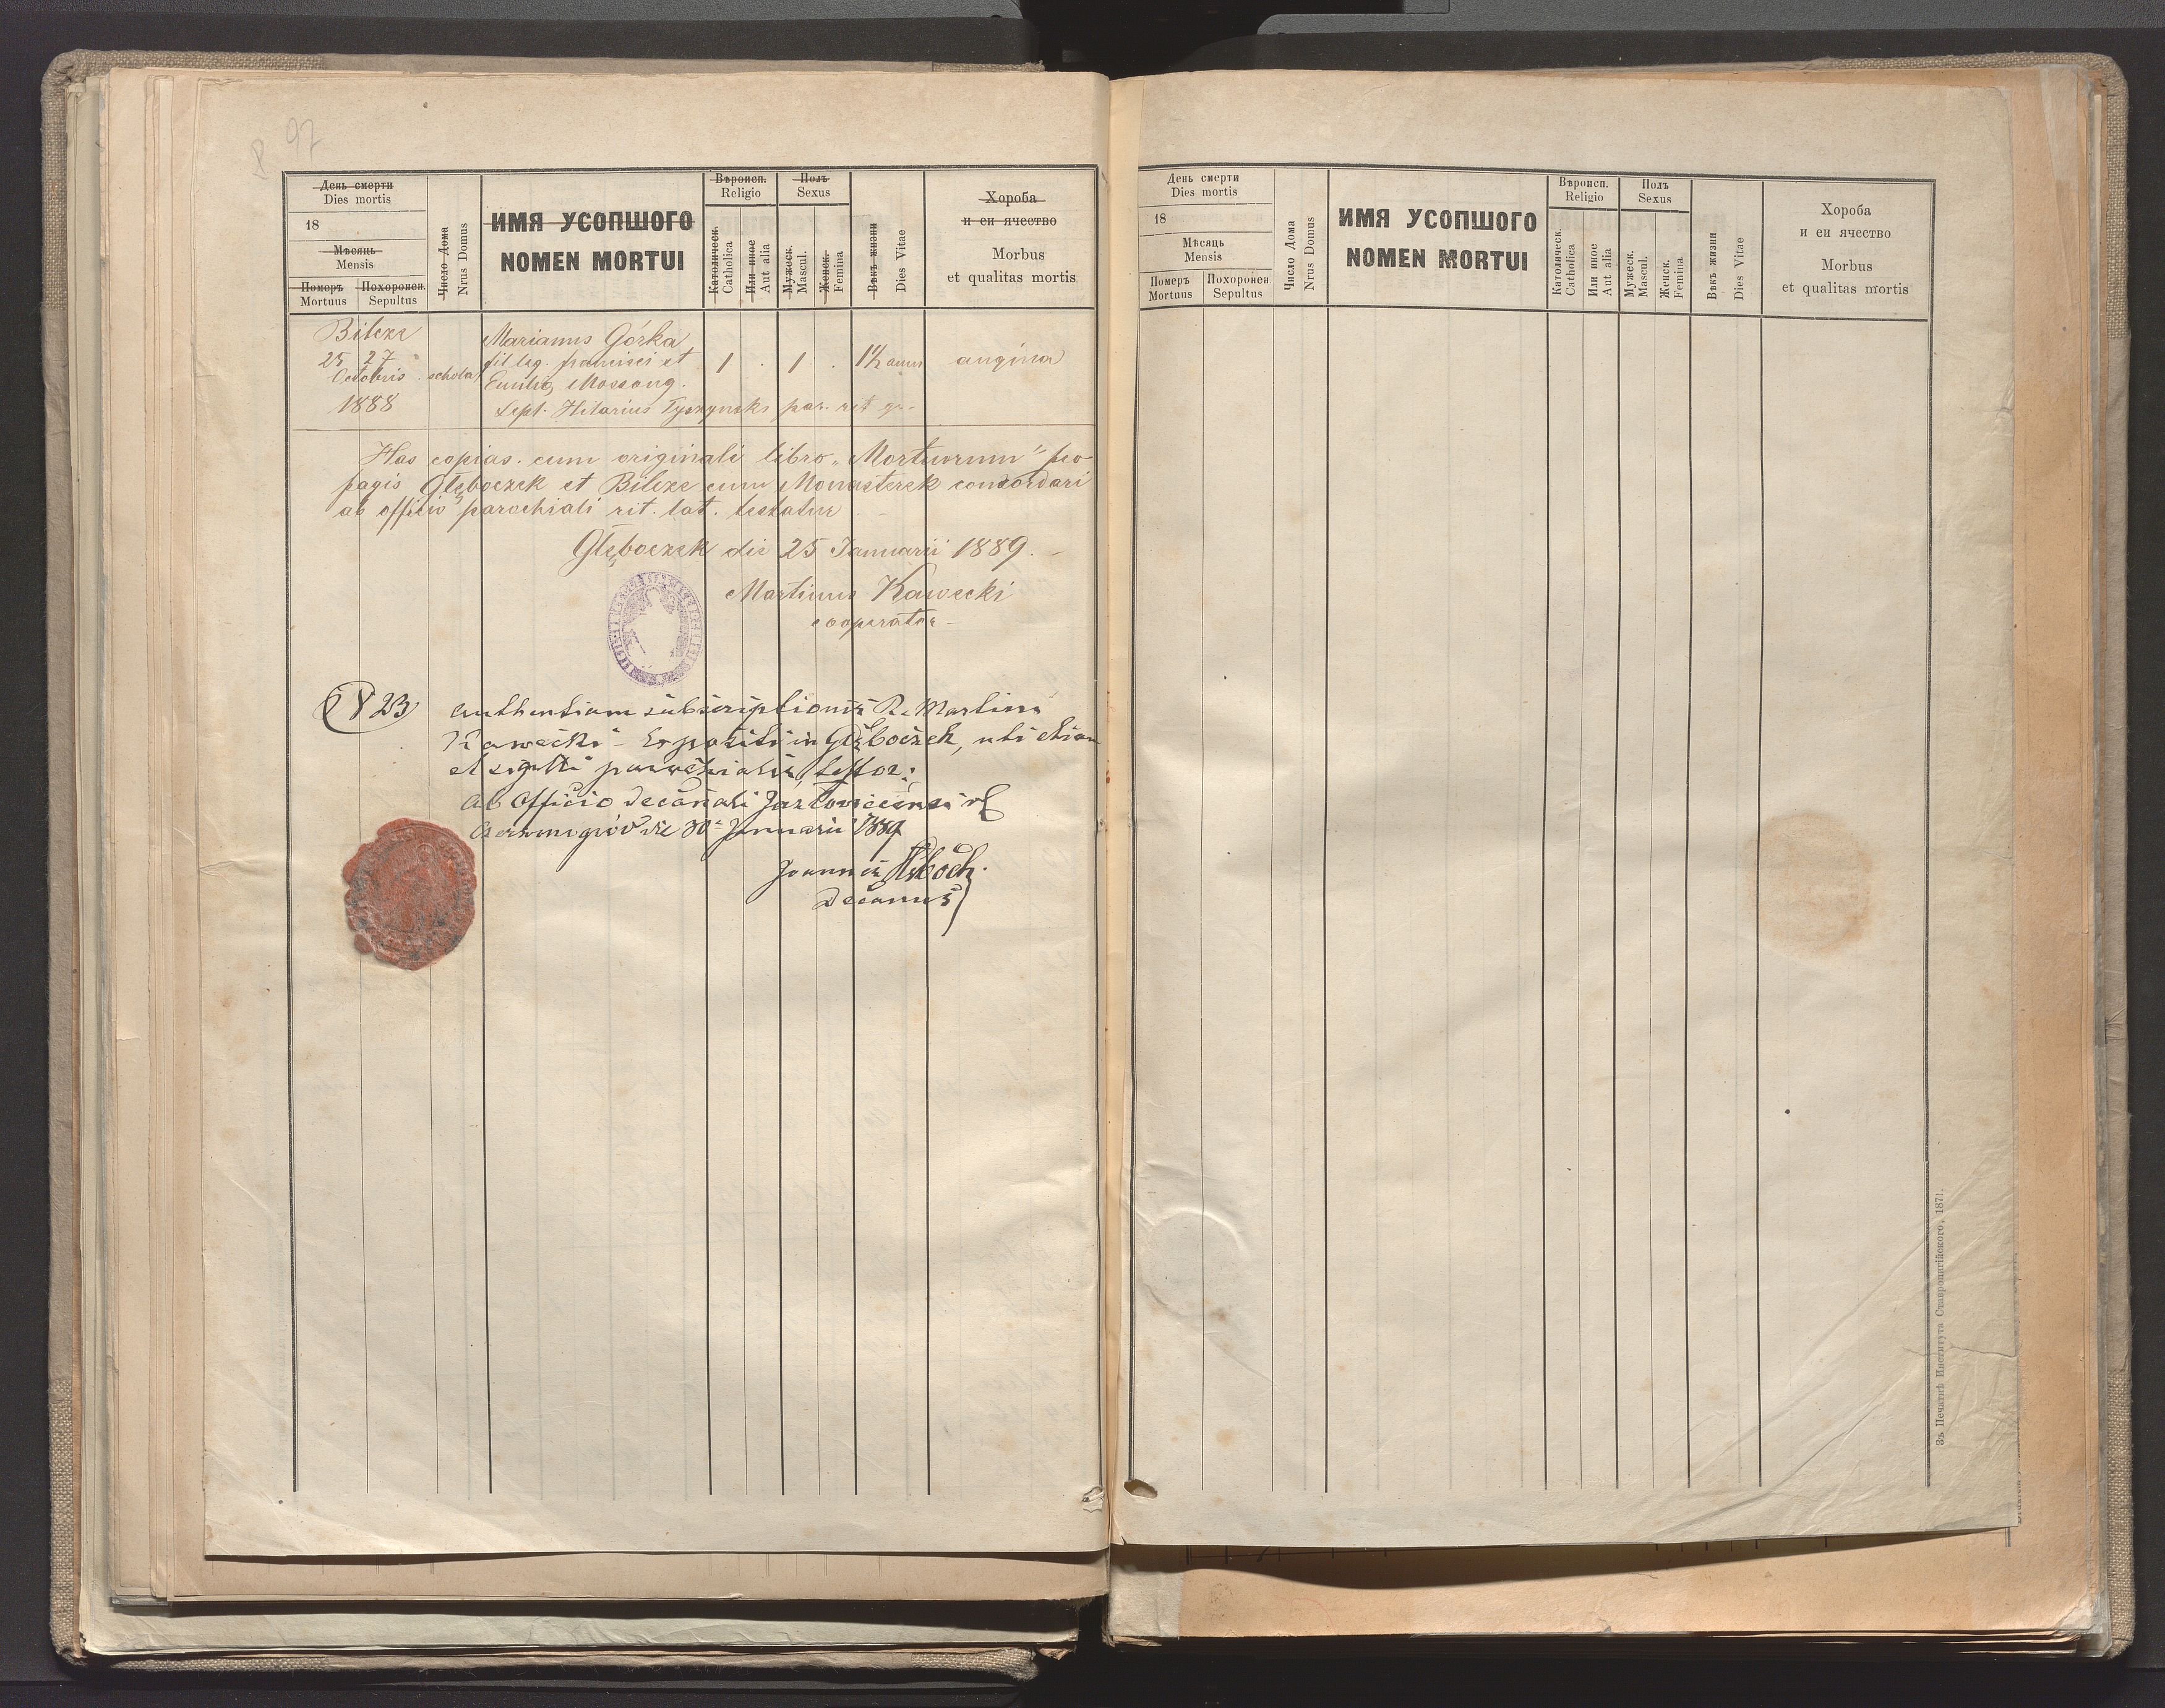 97
День смерти
Dies mortis
18
Мѣсяць
Mensis
Померъ
Mortuus
Похоронен.
Sepultus
Число Дома
Nrus Domus
ИМЯ УСОПШОГО
NOMEN MORTUI
Вѣроисп.
Religio
Католическ.
Catholica
Или иное
Aut alia
Полъ
Sexus
Мужеск.
Mascul.
Женск.
Femina
Вѣкъ жизни
Dies Vitae
Хороба
и еи ячество
Morbus
et qualitas mortis
Bilcze
25 27
Octobris
1888
schola
Marianus Górka
fil. leg. francisci et
Emilią Mossong.
1 . 1 .
1½ anni
angina
Sepl. Hilarius Tyszynski par. rit gr.
Has copias cum originali libro „Mortuorum" pro
pagis Głęboczek et Bilcze cum Monasterek concordari
ab officio parochiali rit. lat. testatur
Głęboczek die 25 Januarii 1889.
Martinus Kawecki
cooperator
23
Authentiam subscriptionis R. Martini
Kawecki Expositi in Głęboczek, uti etiam
et sigilli parochialis testor:
Ab Officio Decanali Jazlovicensi rl
die 30 Januarii 1889
Joannes
Decanus
День смерти
Dies mortis
18
Мѣсяць
Mensis
Померъ
Mortuus
Похоронен.
Sepultus
Число Дома
Nrus Domus
ИМЯ УСОПШОГО
NOMEN MORTUI
Вѣроисп.
Religio
Католическ.
Catholica
Или иное
Aut alia
Полъ
Sexus
Мужеск.
Mascul.
Женск.
Femina
Вѣкъ жизни
Dies Vitae
Хороба
и еи ячество
Morbus
et qualitas mortis
Зъ Печатнѣ Института Ставропигійского, 1871.